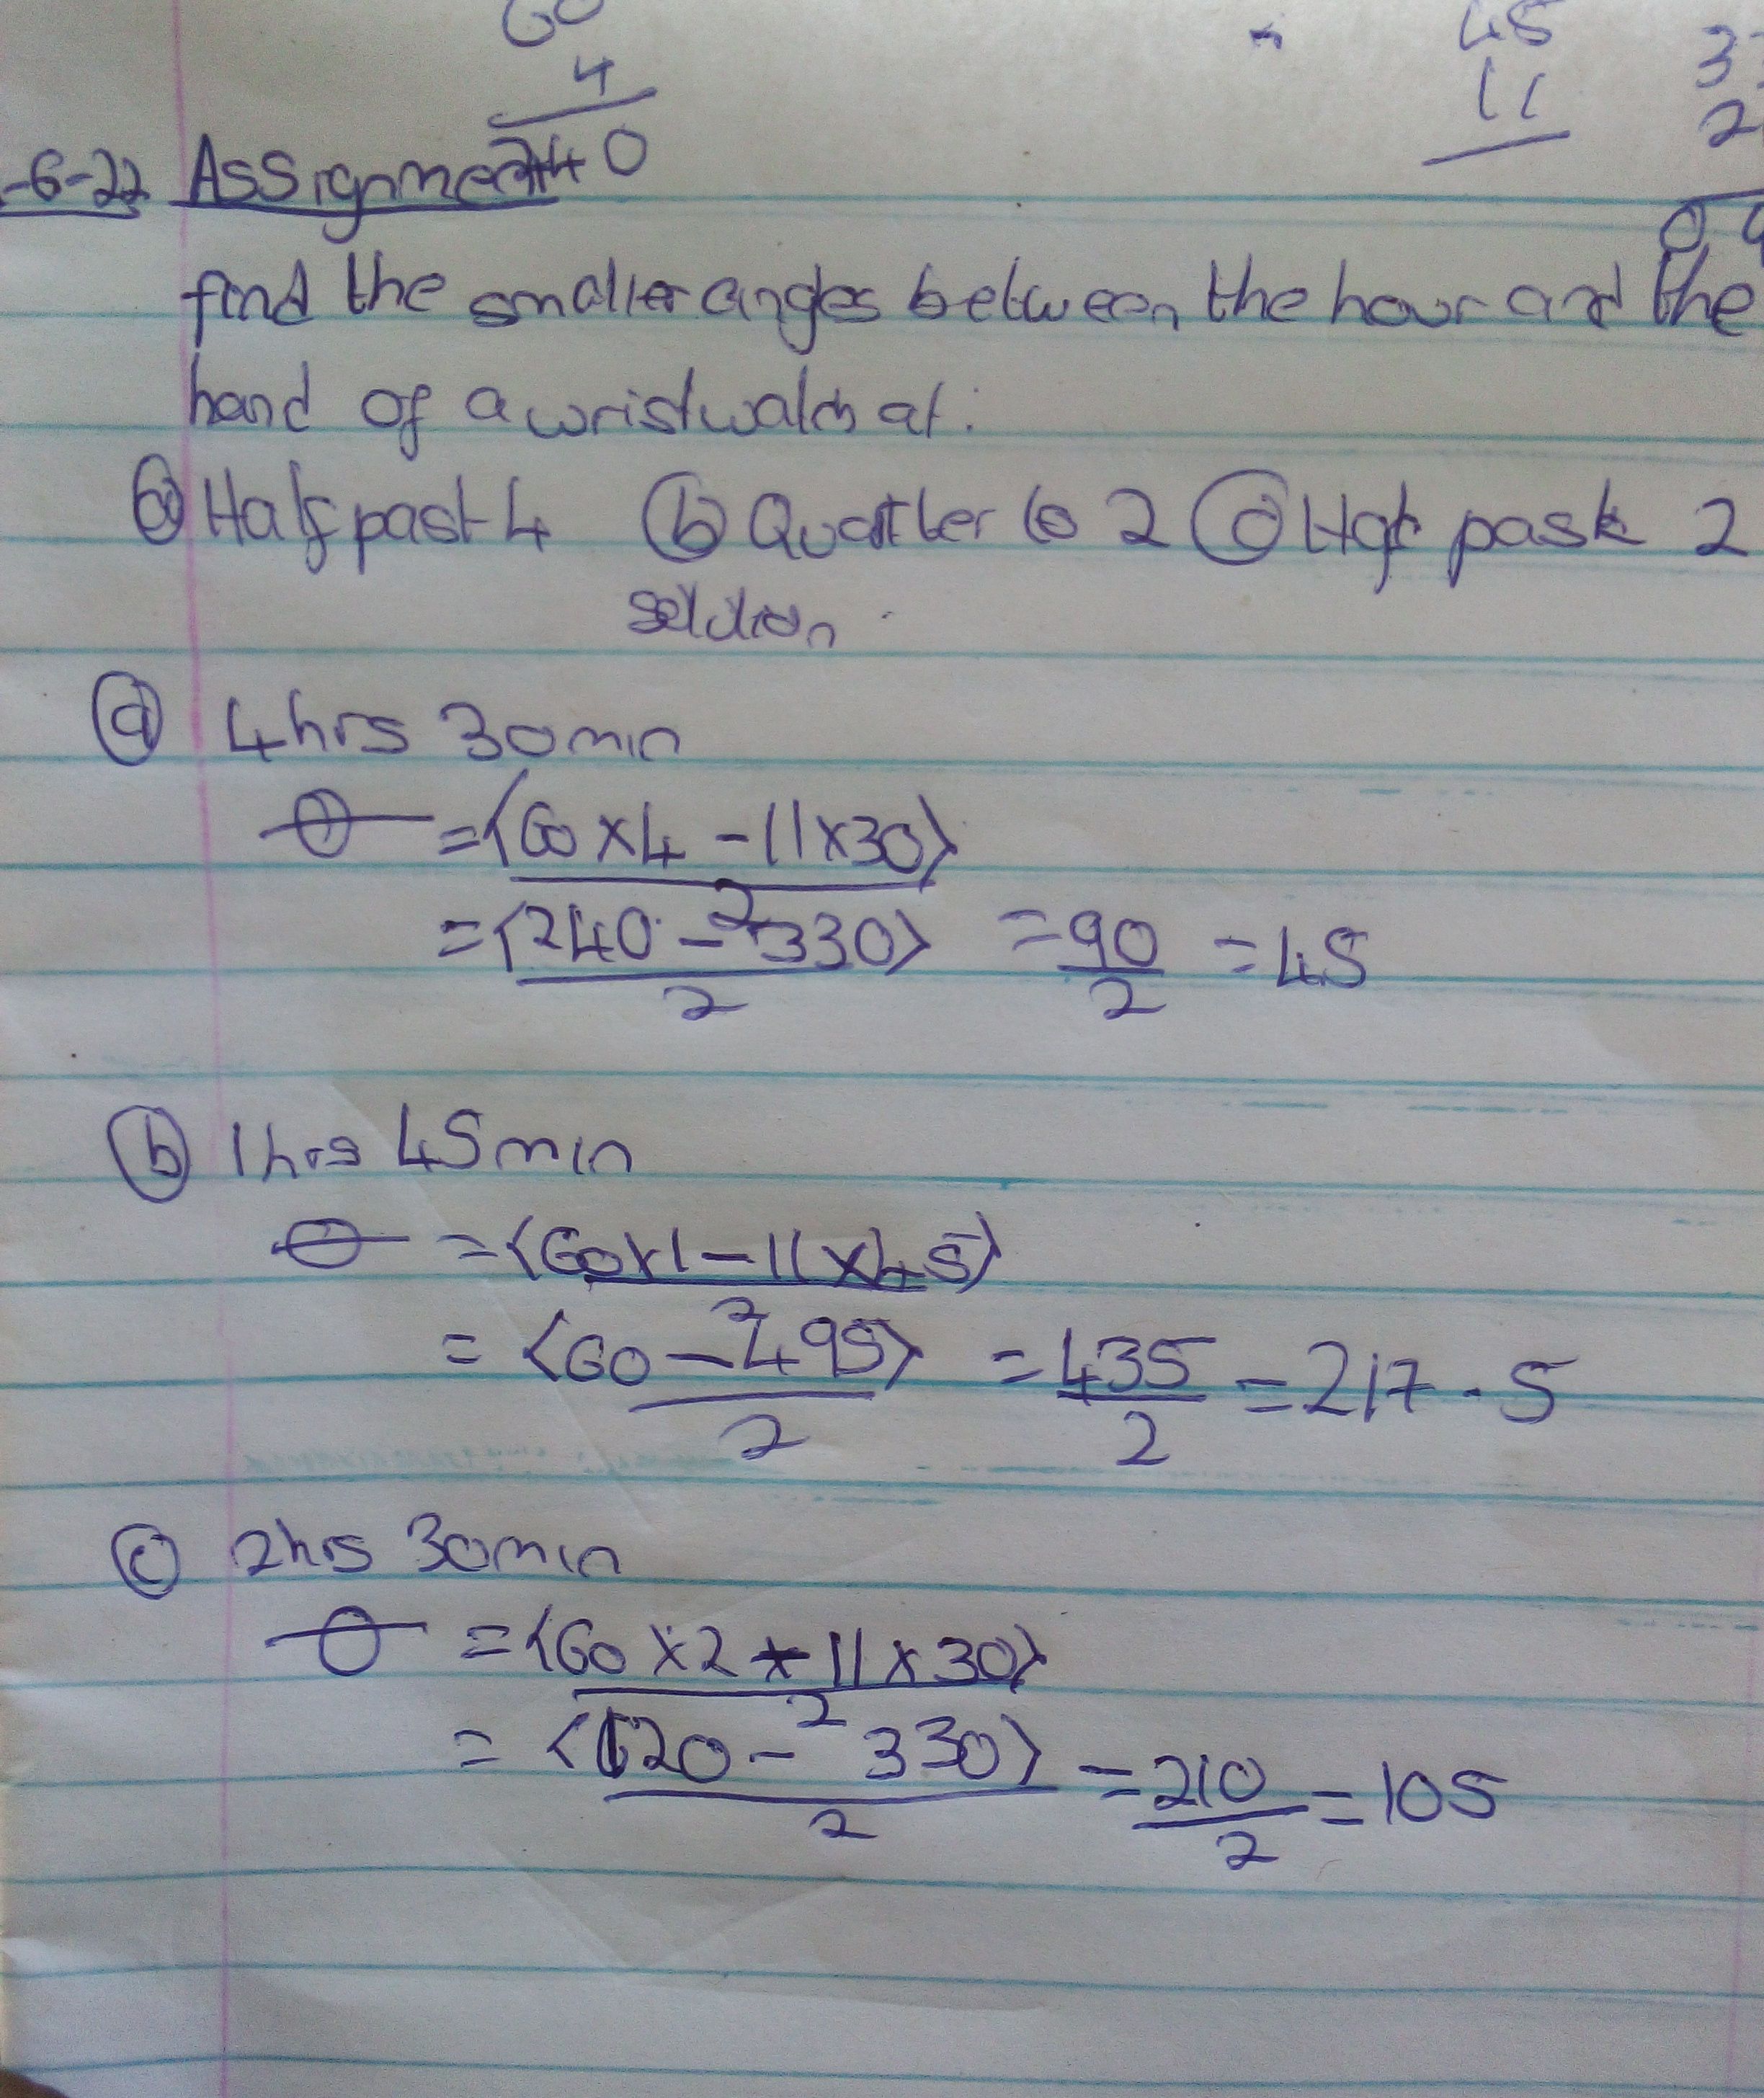 60
4
240
45
11
-6-22 Assignment
find the smaller angles between the hour and the
hand of a wristwatch at:
(a) Half past 4 (b) Quatter to 2 (c) Half past 2
solution
(a) 4hrs 30min
θ = <60×4 - 11×30>
2
= <240 - 330> = 90 = 45
2 2
(b) 1hrs 45min
θ = <60×1 - 11×45>
2
= <60 - 495> = 435 = 217.5
2 2
(c) 2hrs 30min
θ = <60×2 - 11×30>
2
= <120 - 330> = 210 = 105
2 2